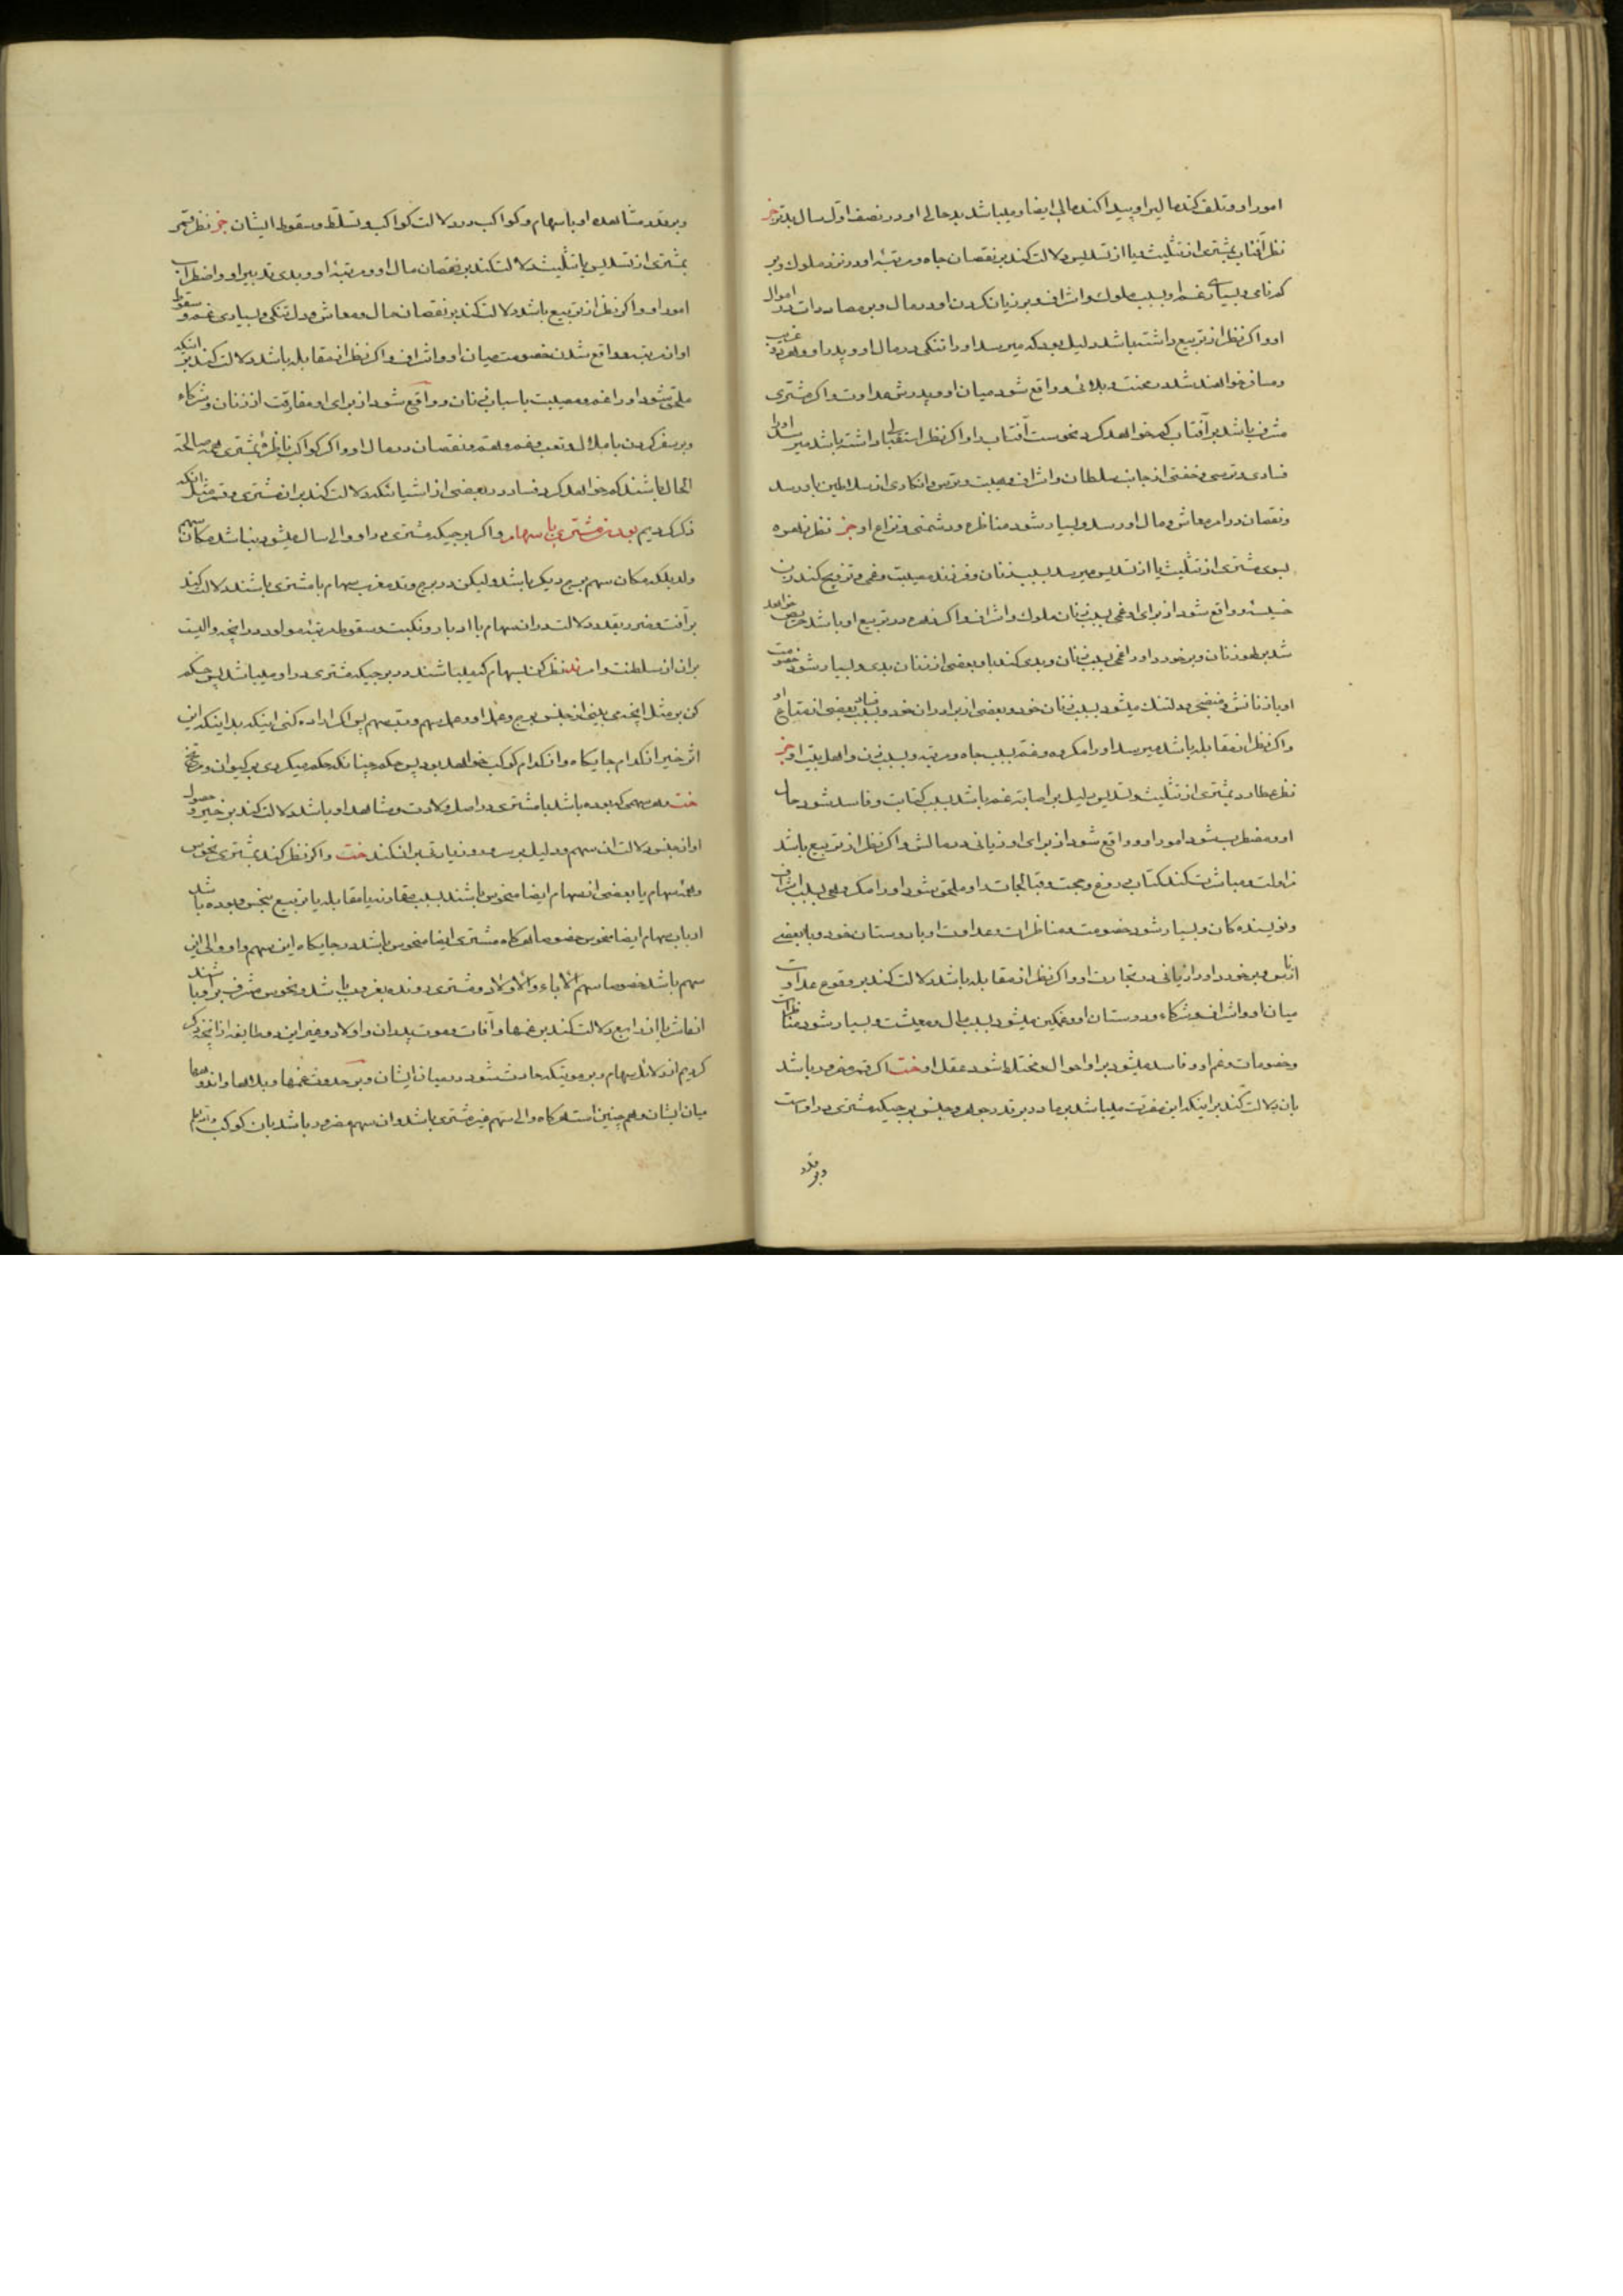 امور او و تلف کند مالی را و پیدا کند مالی ایضا و میباشد بدحالی او در نصف اول سال بدتر خبر
نظر آفتاب بمشتری از تثلیث یا از تسدیس دلالت کند بر نقصان جاه و مرتبهٔ او در نزد ملوک و بر
غم او بسبب ملوک و اشراف و بر زیان کردن او در مال و بر مصادرات در اموال
او و اگر نظر از تربیع داشته باشد دلیل بود که میرسد او را تنگی در مال او و پدر او
و مسافر خواهند شد در محنت و بلائی و واقع شود میان او و پدرش عداوت و اگر مشتری
مشرف باشد بر آفتاب کم خواهد کرد نحوست آفتاب را و اگر نظر استقبال داشته باشد میرسد او را
فسادی و ترسی و خفتی از جانب سلطان و اشراف و مصیبت و ترس و انکاری از سلاطین باو رسد
و نقصان در امر معاش و مال او رسد و بسیار شود مناظره و دشمنی و نزاع او خبر نظر زهره
بسوی مشتری از تثلیث یا از تسدیس میرسد بسبب زنان و فرزند مصیبت و غمی و تزویج کند زن
خسیسه و واقع شود از برای او غمی بسبب زنان ملوک و اشراف و اگر زهره در تربیع او باشد حریص خواهد
شد بر طور زنان و برخورد او را غمی بسبب زنان و بدی کند با او بعضی از زنان بدی و بسیار شود خصومت
او با زنانش و دلتنگ میشود بسبب زنان خود و بعضی از برادران خود و بسبب فساد بعضی از متاع او
و اگر نظر از مقابله باشد میرسد او را مکروه و غم بسبب جاه و مرتبه و بسبب زن و اهل بیت او خبر
نظر عطارد بمشتری از تثلیث و تسدیس دلیل بر اصابة غم باشد بسبب کتابت و فاسد شود حال
او و مضطرب شود امور او و واقع شود از برای او زیانی در مالش و اگر نظر از تربیع باشد
مزاولت و مباشرت کند کتاب دروغ و حجت و قبالجات را و ملحق شود او را مکروهی بسبب اشراف
و نویسنده‌کان و بسیار شود خصومت و مناظرات و عداوت او با دوستان خود و با بعضی
از ناس و برخورد او را زیانی در تجارت او و اگر نظر از مقابله باشد دلالت کند بر وقوع عداوت
میان او و اشراف و شرکاء و دوستان او و غمکین میشود بسبب مال و معیشت و بسیار شود مناظرات
و خصومات و غم او و فاسد میشود بر او احوال و مختلط شود عقل او خت اگر قمر مضرور باشد
بان دلالت کند بر اینکه این مضرت میباشد بر مادر بقدر جوهر و جنس برجیکه مشتری در اوست
و بر قدر
و بر قدر مشاهده او با سهام و کواکب در دلالت کواکب و تسلط و سقوط ایشان خبر نظر قمر
بمشتری از تسدیس یا تثلیث دلالت کند بر نقصان مال او و مرتبهٔ او و بدی تدبیر او و اضطراب
امور او و اگر نظر از تربیع باشد دلالت کند بر نقصان حال و معاش و دلتنگی و بسیاری غم و سقوط
او از مرتبه و واقع شدن خصومت میان او و اشراف و اگر نظر از مقابله باشد دلالت کند بر آنکه
ملحق شود او را غم و مصیبت باسباب زنان و واقع شود از برای او مفارقت از زنان و شرکاء
و بر سفر کردن با ملال و تعب و غم و هم و نقصان در مال او و اگر کواکب ناظره بمشتری صالحة
الحال باشند کم خواهد کرد فساد در بعضی از اشیائیکه دلالت کند بر آن مشتری و قمر مثل آنکه
ذکر کردیم بودن مشتری با سهام و اگر برجیکه مشتری در او والی سال میشود نباشد مکان سهم
ولد بلکه مکان سهم برج دیگر باشد و لیکن در برج و تد مغرب سهام با مشتری باشند دلالت کند
بر آفت و ضرر بقدر دلالت در آن سهام با ادبار و نکبت و سقوط مرتبه مولود در آنچه والیت
بر آن از سلطنت و امر بد نظر کن بسهام که میباشند در برجیکه مشتری در او میباشد پس حکم
کن بر مثل آنچه می‌بینی از جنس برج و خداوند سهم و رتبه سهم پس اگر اراده کنی اینکه بدانی که این
اثر خیر از کدام جایکاه و از کدام کوکب خواهد بود پس حکم چنانکه حکم میکردی بر کیوان و مریخ
خت هر سهمی که بوده باشد با مشتری در اصل ولادت و مشاهد او باشد دلالت کند بر خیر و حصول
او از جنس دلالت آن سهم و دلیل بر سرور و زیارت خت و اگر نظر کند بمشتری نحوس
و همهٔ سهام یا بعضی از سهام ایضا منحوس باشند بسبب مقارنه یا مقابله یا تربیع نحس و بوده باشند
ارباب سهام ایضا منحوس خصوصا هرکاه مشتری ایضا منحوس باشد در جایکاه این سهم و او والی این
سهم باشد خصوصا سهم الاباء و الاولاد و مشتری رونده بغروب باشد و نحوس مشرف بر او باشند
از عاشر یا از رابع دلالت کند بر غمها و آفات و موت پدران و اولاد و غیر این دو طایفه از آنچه ذکر
کردیم از دلائل سهام و بر موتیکه حادث شود در میان ایشان و بر حدوث غمها و بلاها و اندوهها
میان ایشان و همچنین است هرکاه والی سهم غیر مشتری باشد و ان سهم مضرور باشد بان کوکب